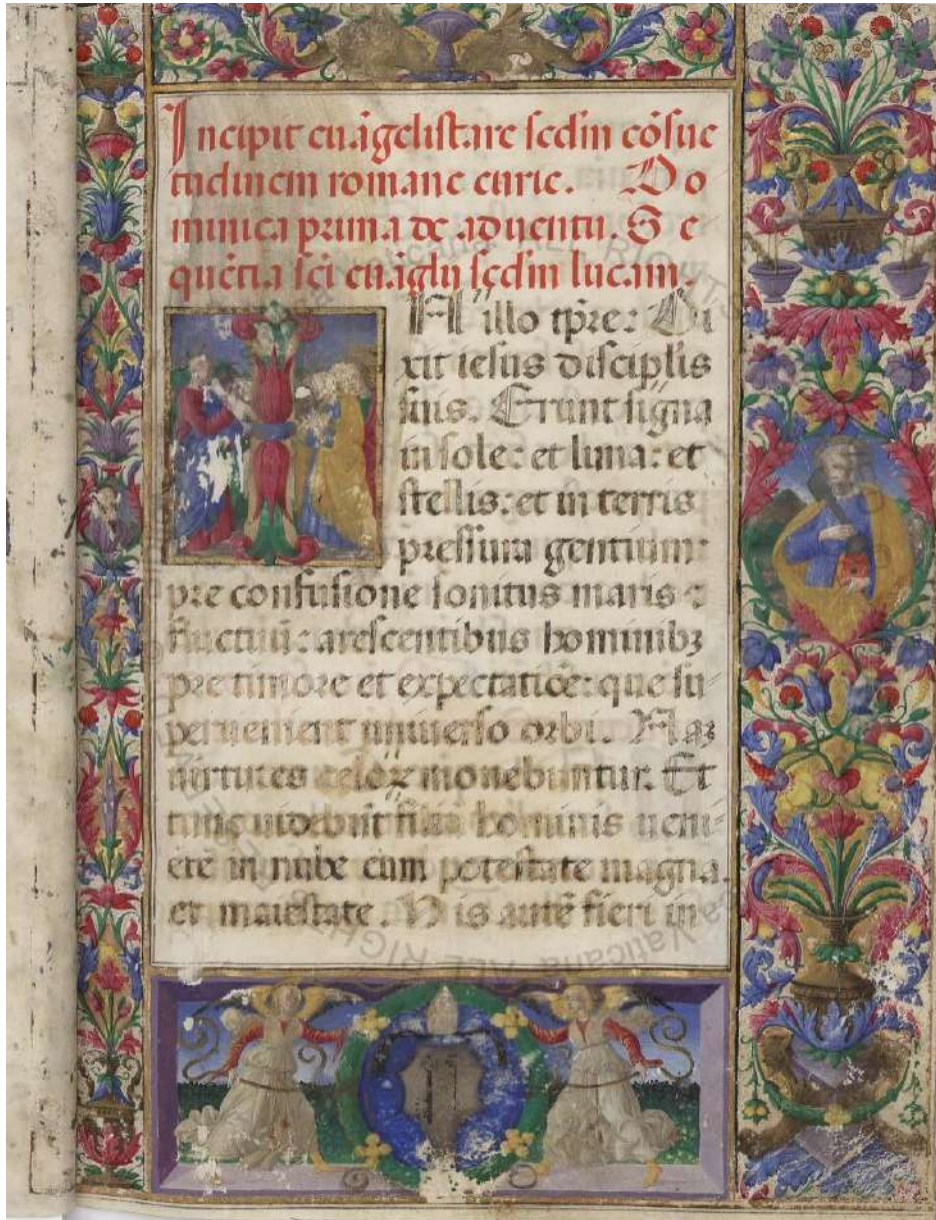 Incipit euāgelistare scdm cōsue
tudinem romane curie. Do
minica prima de aduentu. Se
quētia sci euāglii scdm lucam.
In illo tp̄re: Di
xit iesus disciplis
suis. Erunt signa
in sole: et luna: et
stellis: et in terris
pressura gentium:
pre confusione sonitus maris :
fluctuū: arescentibus hominibꝫ
pre timore et expectatiōe: que su
peruenient uniuerso orbi. Naꝫ
uirtutes celoꝝ mouebuntur. Et
tunc uidebūt filiū hominis ueni
ētē in nube cum potestate magna
et maiestate. His autē fieri in